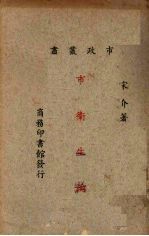 市政叢書
宋介著
市衛生論
商務印書館發行